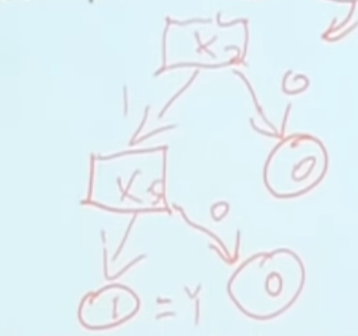 X2
1 0
0
X5
0
1 = Y 0